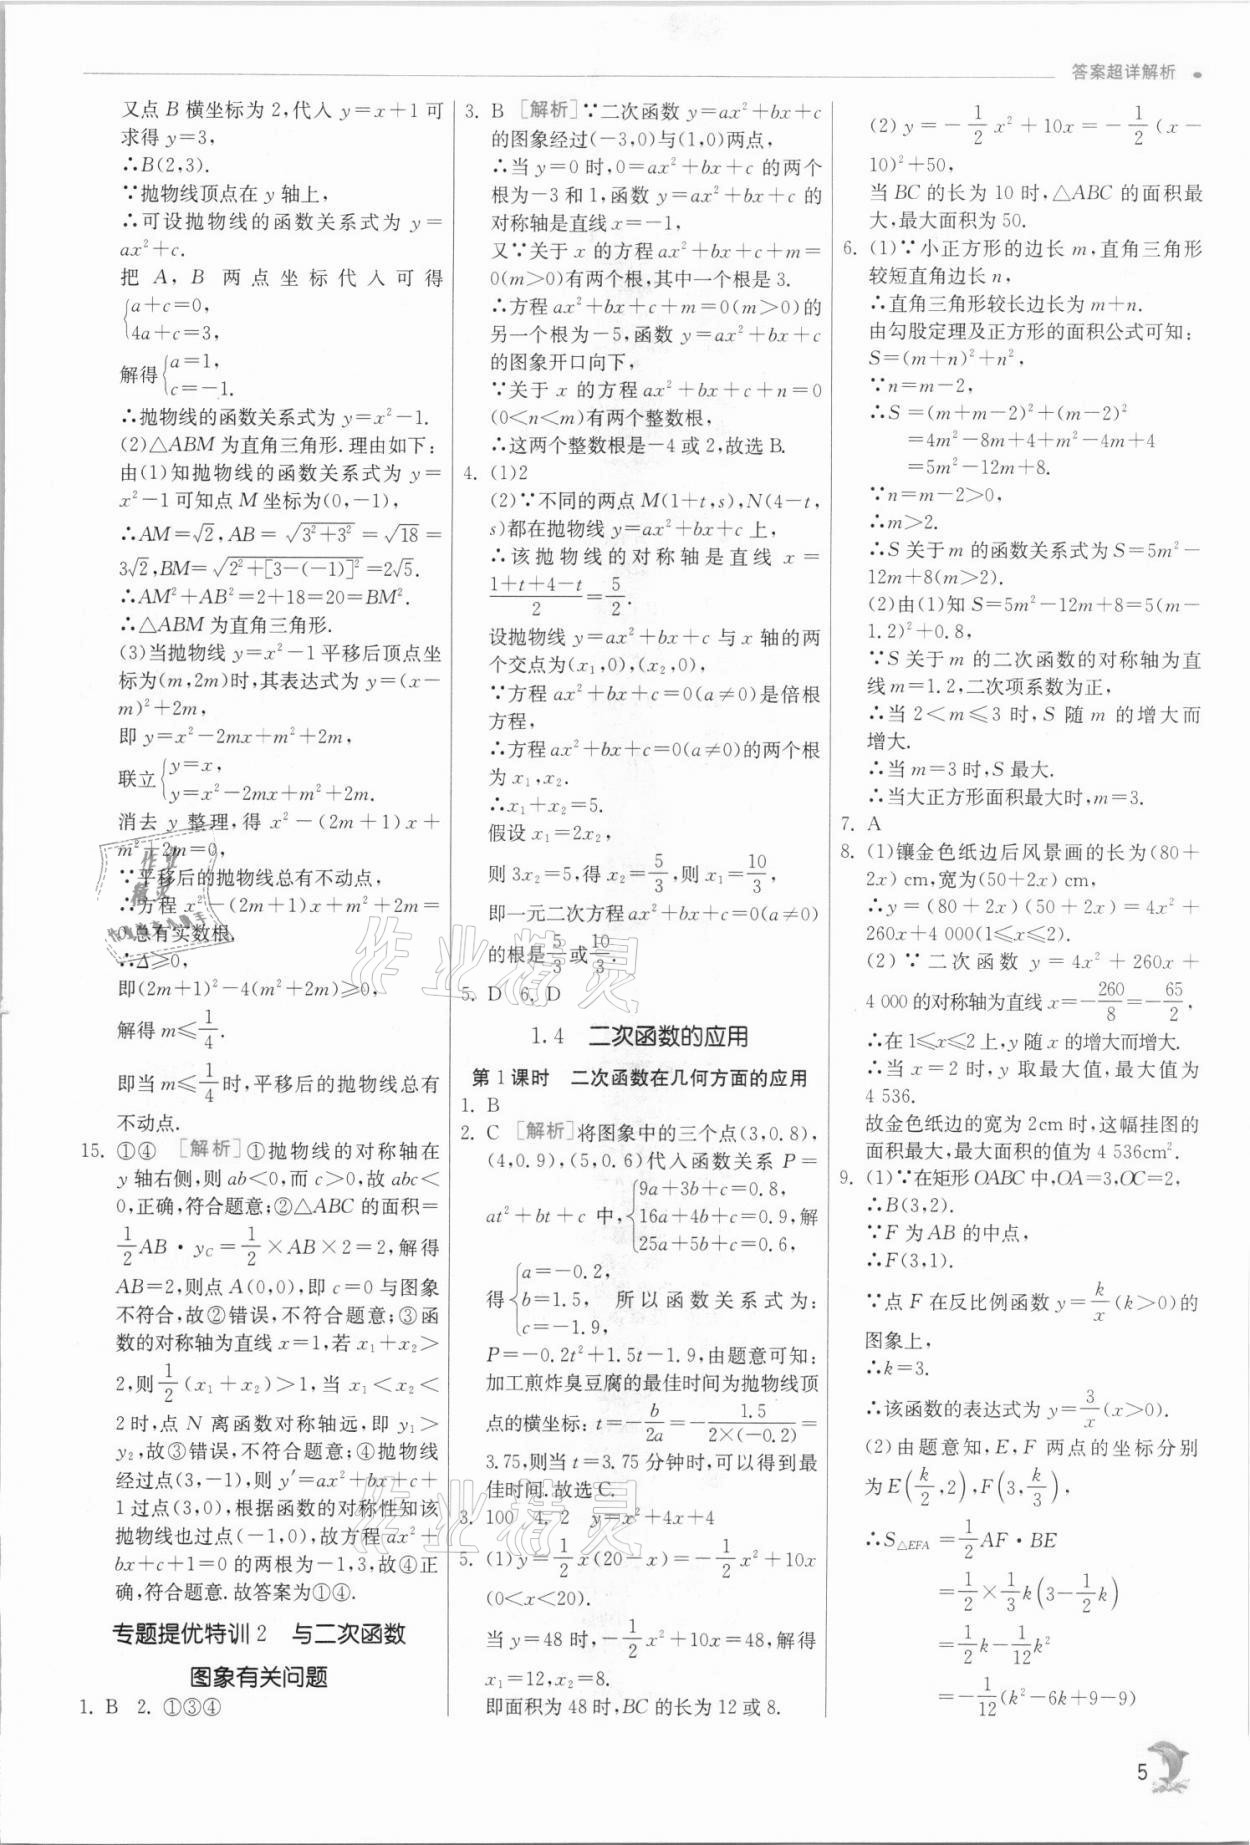 答案超详解析
又点 B 横坐标为 2,代入 y=x+1 可
求得 y=3,
∴B(2,3).
∵抛物线顶点在 y 轴上,
∴可设抛物线的函数关系式为 y=
ax²+c.
把 A, B 两点坐标代入可得
{a+c=0,
4a+c=3,
解得{a=1,
c=-1.
∴抛物线的函数关系式为 y=x²-1.
(2)△ABM 为直角三角形.理由如下:
由(1)知抛物线的函数关系式为 y=
x²-1 可知点 M 坐标为(0,-1),
∴AM=√2,AB=√(3²+3²)=√18=
3√2,BM=√(2²+[3-(-1)]²)=2√5.
∴AM²+AB²=2+18=20=BM².
∴△ABM 为直角三角形.
(3)当抛物线 y=x²-1 平移后顶点坐
标为(m,2m)时,其表达式为 y=(x-
m)²+2m,
即 y=x²-2mx+m²+2m,
联立{y=x,
y=x²-2mx+m²+2m.
消去 y 整理,得 x²-(2m+1)x+
m²+2m=0,
∵平移后的抛物线总有不动点,
∴方程 x²-(2m+1)x+m²+2m=
0总有实数根,
∴Δ≥0,
即(2m+1)²-4(m²+2m)≥0,
解得 m≤1/4.
即当 m≤1/4时,平移后的抛物线总有
不动点.
15. ①④ [解析]①抛物线的对称轴在
y 轴右侧,则 ab<0,而 c>0,故 abc<
0,正确,符合题意;②△ABC 的面积=
1/2AB·y_C=1/2×AB×2=2,解得
AB=2,则点 A(0,0),即 c=0 与图象
不符合,故②错误,不符合题意;③函
数的对称轴为直线 x=1,若 x₁+x₂>
2,则1/2(x₁+x₂)>1,当 x₁<x₂<
2时,点 N 离函数对称轴远,即 y₁>
y₂,故③错误,不符合题意;④抛物线
经过点(3,-1),则 y′=ax²+bx+c+
1过点(3,0),根据函数的对称性知该
抛物线也过点(-1,0),故方程 ax²+
bx+c+1=0 的两根为-1,3,故④正
确,符合题意.故答案为①④.
专题提优特训 2 与二次函数
图象有关问题
1. B 2. ①③④
3. B [解析]∵二次函数 y=ax²+bx+c
的图象经过(-3,0)与(1,0)两点,
∴当 y=0 时,0=ax²+bx+c 的两个
根为-3 和 1,函数 y=ax²+bx+c 的
对称轴是直线 x=-1,
又∵关于 x 的方程 ax²+bx+c+m=
0(m>0)有两个根,其中一个根是 3.
∴方程 ax²+bx+c+m=0(m>0)的
另一个根为-5,函数 y=ax²+bx+c
的图象开口向下,
∵关于 x 的方程 ax²+bx+c+n=0
(0<n<m)有两个整数根,
∴这两个整数根是-4 或 2,故选 B.
4. (1)2
(2)∵不同的两点 M(1+t,s),N(4-t,
s)都在抛物线 y=ax²+bx+c 上,
∴该抛物线的对称轴是直线 x=
(1+t+4-t)/2=5/2.
设抛物线 y=ax²+bx+c 与 x 轴的两
个交点为(x₁,0),(x₂,0),
∵方程 ax²+bx+c=0(a≠0)是倍根
方程,
∴方程 ax²+bx+c=0(a≠0)的两个根
为 x₁,x₂.
∴x₁+x₂=5.
假设 x₁=2x₂,
则 3x₂=5,得 x₂=5/3,则 x₁=10/3,
即一元二次方程 ax²+bx+c=0(a≠0)
的根是5/3或10/3.
5. D 6. D
1.4 二次函数的应用
第 1 课时 二次函数在几何方面的应用
1. B
2. C [解析]将图象中的三个点(3,0.8),
(4,0.9),(5,0.6)代入函数关系 P=
at²+bt+c 中,{9a+3b+c=0.8,
16a+4b+c=0.9,解
25a+5b+c=0.6,
得{a=-0.2,
b=1.5, 所以函数关系式为:
c=-1.9,
P=-0.2t²+1.5t-1.9,由题意可知:
加工煎炸臭豆腐的最佳时间为抛物线顶
点的横坐标:t=-b/2a=-1.5/(2×(-0.2))=
3.75,则当 t=3.75 分钟时,可以得到最
佳时间.故选 C.
3. 100 4. 2 y=x²+4x+4
5. (1)y=1/2x(20-x)=-1/2x²+10x
(0<x<20).
当 y=48 时,-1/2x²+10x=48,解得
x₁=12,x₂=8.
即面积为 48 时,BC 的长为 12 或 8.
(2)y=-1/2x²+10x=-1/2(x-
10)²+50,
当 BC 的长为 10 时,△ABC 的面积最
大,最大面积为 50.
6. (1)∵小正方形的边长 m,直角三角形
较短直角边长 n,
∴直角三角形较长边长为 m+n.
由勾股定理及正方形的面积公式可知:
S=(m+n)²+n²,
∵n=m-2,
∴S=(m+m-2)²+(m-2)²
=4m²-8m+4+m²-4m+4
=5m²-12m+8.
∵n=m-2>0,
∴m>2.
∴S 关于 m 的函数关系式为 S=5m²-
12m+8(m>2).
(2)由(1)知 S=5m²-12m+8=5(m-
1.2)²+0.8,
∵S 关于 m 的二次函数的对称轴为直
线 m=1.2,二次项系数为正,
∴当 2<m≤3 时,S 随 m 的增大而
增大.
∴当 m=3 时,S 最大.
∴当大正方形面积最大时,m=3.
7. A
8. (1)镶金色纸边后风景画的长为(80+
2x) cm,宽为(50+2x) cm,
∴y=(80+2x)(50+2x)=4x²+
260x+4 000(1≤x≤2).
(2)∵二次函数 y=4x²+260x+
4 000 的对称轴为直线 x=-260/8=-65/2,
∴在 1≤x≤2 上,y 随 x 的增大而增大.
∴当 x=2 时,y 取最大值,最大值为
4 536.
故金色纸边的宽为 2cm 时,这幅挂图的
面积最大,最大面积的值为 4 536cm².
9. (1)∵在矩形 OABC 中,OA=3,OC=2,
∴B(3,2).
∵F 为 AB 的中点,
∴F(3,1).
∵点 F 在反比例函数 y=k/x(k>0)的
图象上,
∴k=3.
∴该函数的表达式为 y=3/x(x>0).
(2)由题意知,E,F 两点的坐标分别
为 E(k/2,2),F(3,k/3),
∴S△EFA=1/2AF·BE
=1/2×1/3k(3-1/2k)
=1/2k-1/12k²
=-1/12(k²-6k+9-9)
5
作业精灵
作业精灵